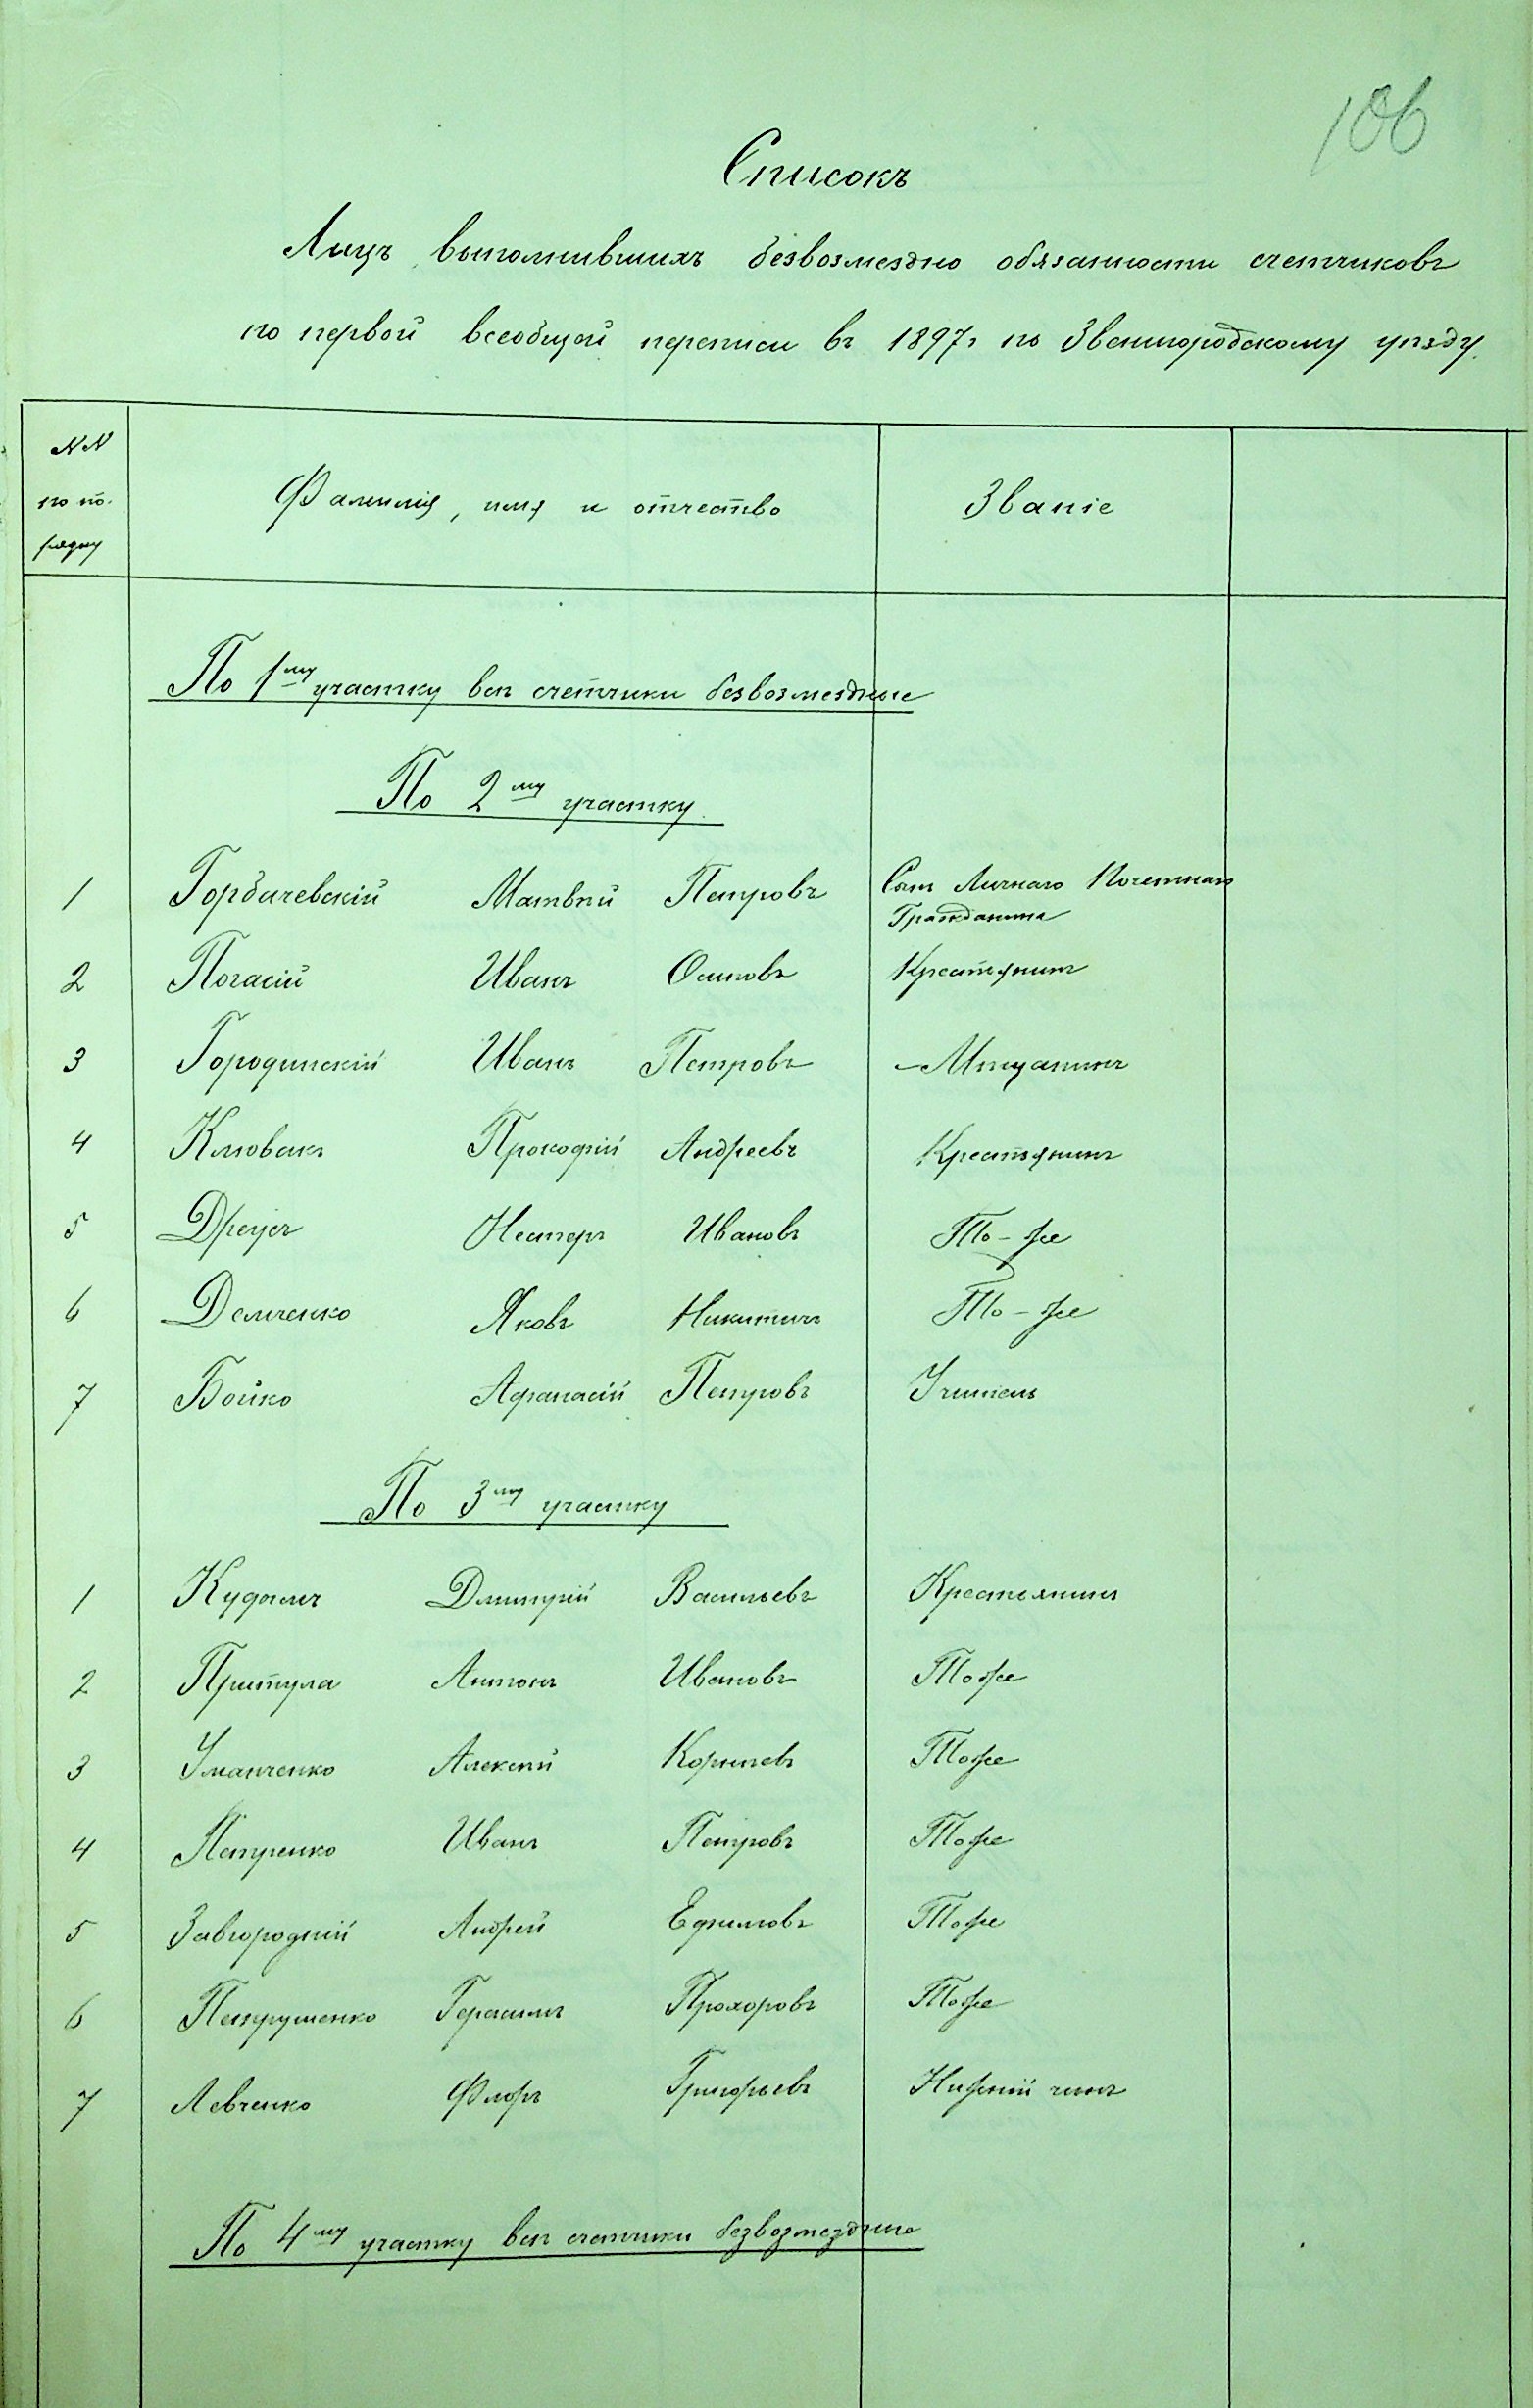 106
Списокъ
Лицъ, выполнившихъ безвозмездно обязанности счетчиковъ
по первой всеобщей переписи въ 1897 г по Звенигородскому уѣзду.
№№ по по-рядку
Фамилія, имя и отчество
Званіе
По 1му участку всѣ счетчики безвозмездные
По 2му участку
1 Горбачевскій Матвѣй Петровъ Сынъ Личнаго Почетнаго Гражданина
2 Погасій Иванъ Осиповъ Крестьянинъ
3 Городинскій Иванъ Петровъ Мѣщанинъ
4 Клювакъ Прокофій Андреевъ Крестьянинъ
5 Нестеръ Ивановъ То-же
6 Демченко Яковъ Никитинъ То-же
7 Бойко Афанасій Петровъ Учитель
По 3му участку
1 Дмитрій Васильевъ Крестьянинъ
2 Притула Антонъ Ивановъ Тоже
3 Уманченко Алексѣй Корнѣевъ Тоже
4 Петренко Иванъ Петровъ Тоже
5 Завгородній Андрей Ефимовъ Тоже
6 Петрушенко Герасимъ Прохоровъ Тоже
7 Левченко Флоръ Григорьевъ Нижній чинъ
По 4му участку всѣ счетчики безвозмездные